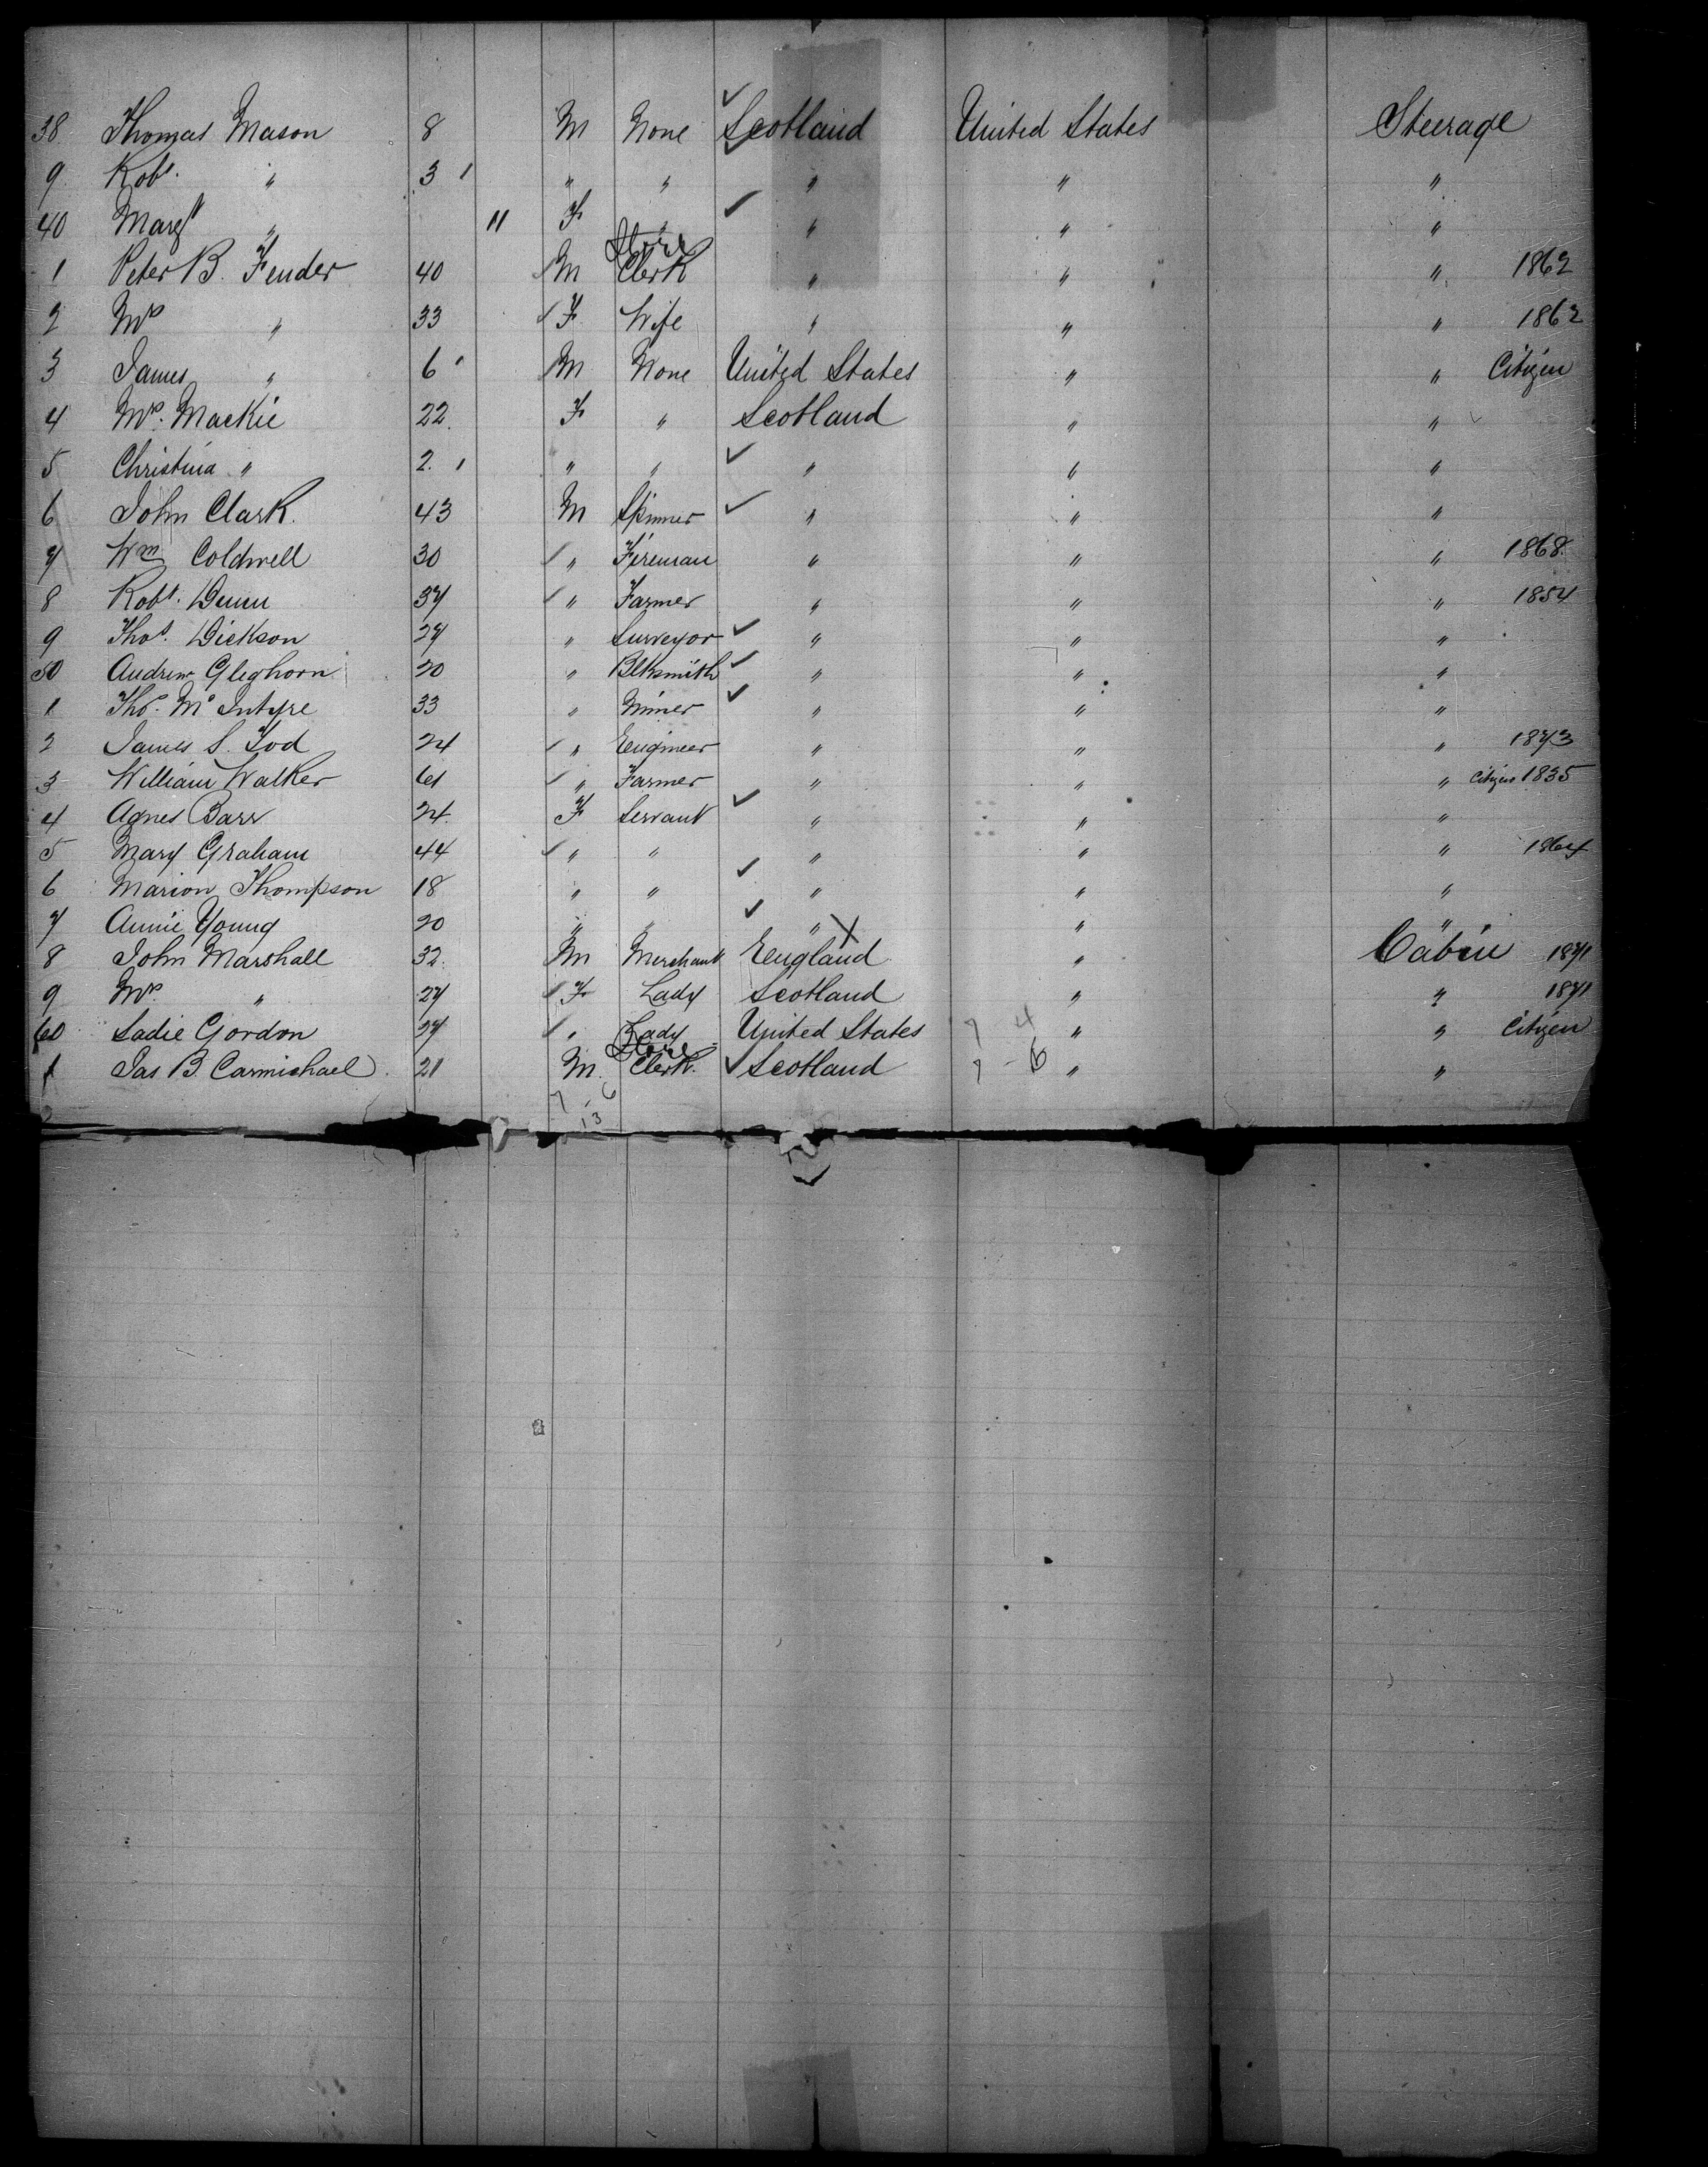 38 Thomas Mason 8 M None Scotland United States Steerage
9 Robt. " 3 " " " " "
40 Margt " 11 F " " " "
1 Peter B. Fender 40 M Store Clerk " " " 1862
2 Mrs " 33 F Wife " " " 1862
3 James " 6 M None United States " " Citizen
4 Mrs. Mackie 22 F " Scotland " "
5 Christina " 2 " " " " "
6 John Clark 43 M Spinner " " "
7 Wm Coldwell 30 " Fireman " " " 1868
8 Robt. Dunn 37 " Farmer " " " 1854
9 Thos. Dickson 27 " Surveyor " " "
50 Andrew Gleghorn 20 " Blksmith " " "
1 Thos. McIntyre 33 " Miner " " "
2 James S. Tod 24 " Engineer " " " 1873
3 William Walker 61 " Farmer " " " Citizen 1835
4 Agnes Barr 24 F Servant " " "
5 Mary Graham 44 " " " " " 1864
6 Marion Thompson 18 " " " " "
7 Annie Young 20 " " " " "
8 John Marshall 32 M Merchant England " Cabin 1871
9 Mrs. " 27 F Lady Scotland " " 1871
60 Sadie Gordon 27 " Lady United States 7 4 " " Citizen
1 Jas B. Carmichael 21 M. Store Clerk. Scotland 7 - 6 " "
7 6
13